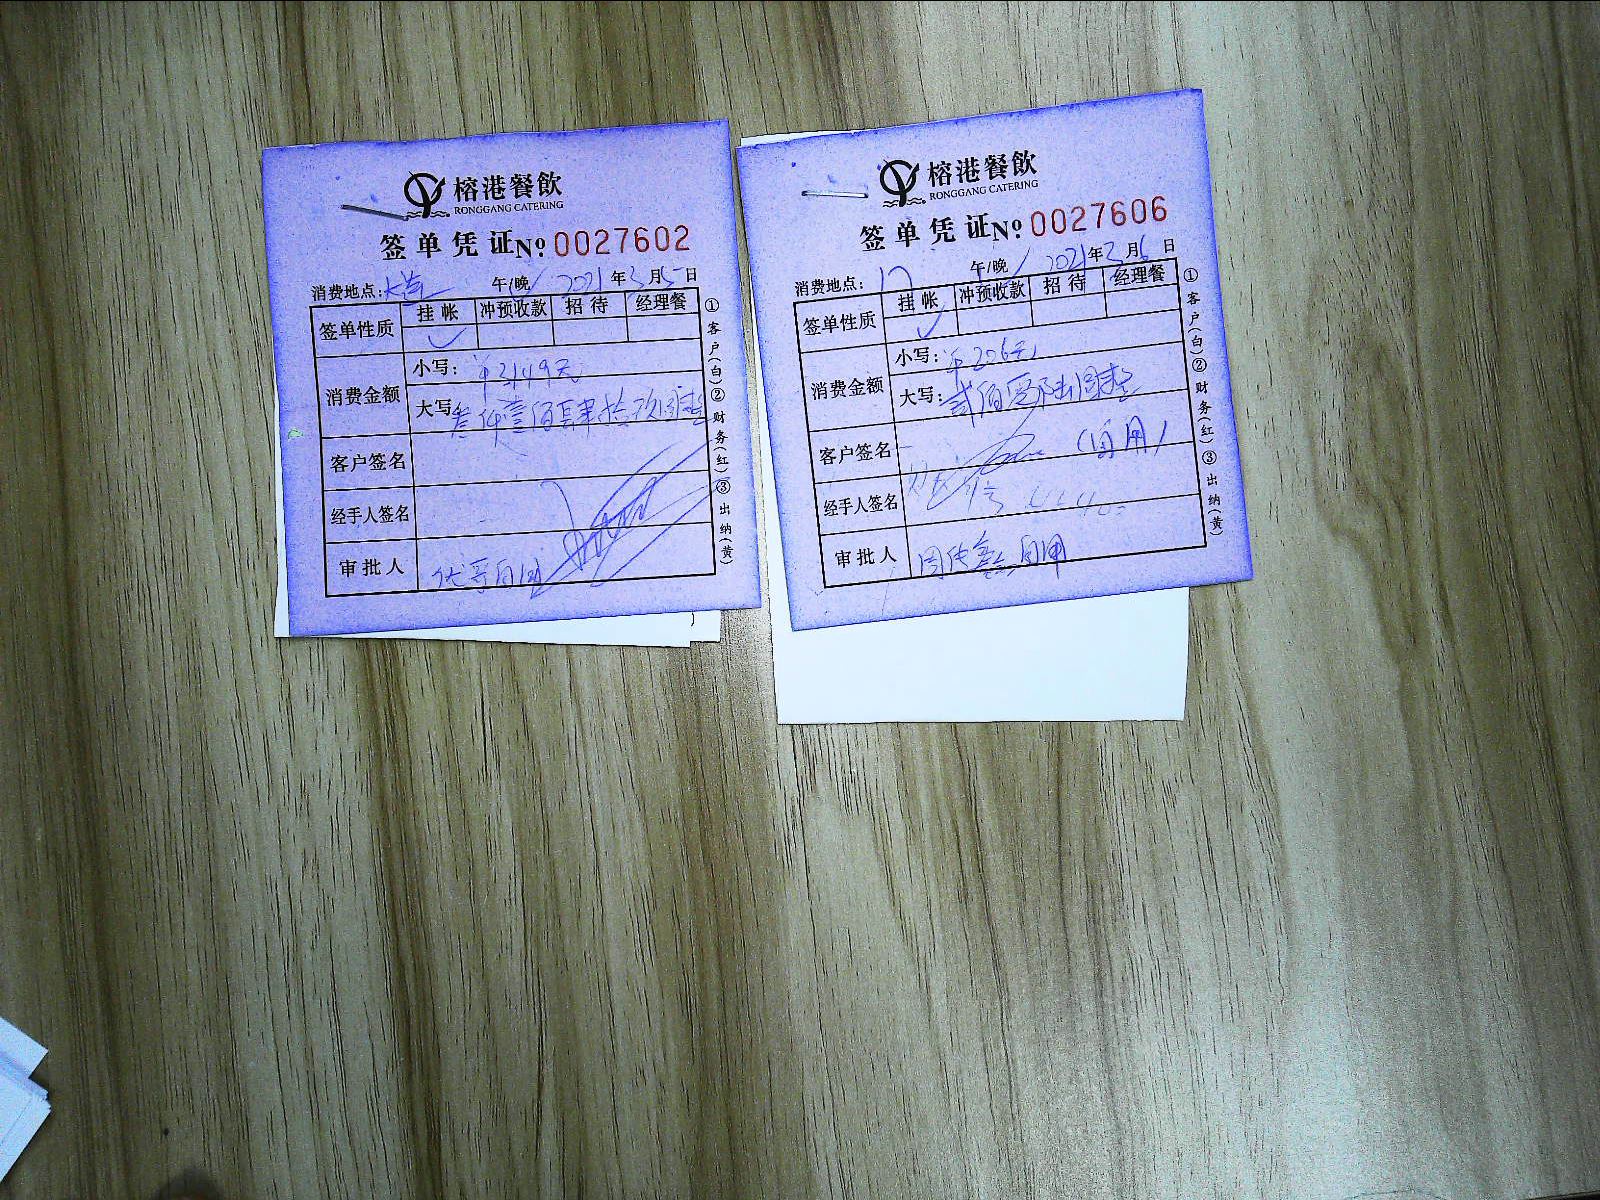 榕港餐飲
RONGGANG CATERING
签单凭证 № 0027602
消费地点: 大堂 午/晚 2021年3月5日
签单性质 挂帐 冲预收款 招待 经理餐
✓
消费金额 小写: ¥3149元
大写: 叁仟壹佰肆拾玖圆整
客户签名
经手人签名
审批人
①客户(白)②财务(红)③出纳(黄)
榕港餐飲
RONGGANG CATERING
签单凭证 № 0027606
消费地点: 午/晚 2021年3月6日
签单性质 挂帐 冲预收款 招待 经理餐
✓
消费金额 小写: ¥206元
大写: 贰佰零陆圆整
客户签名 (自用)
经手人签名
审批人 自用
①客户(白)②财务(红)③出纳(黄)